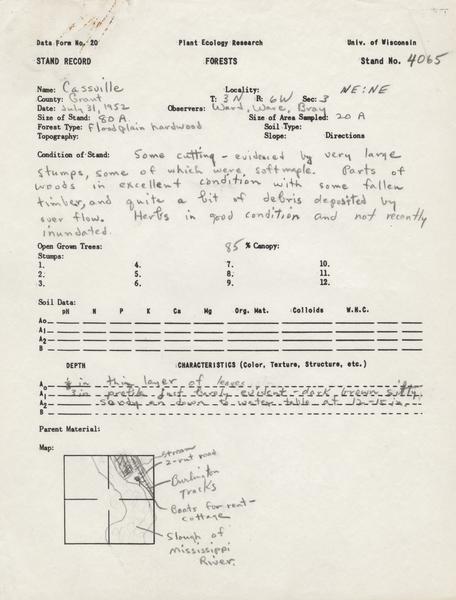 Data Form No. 20 Plant Ecology Research Univ. of Wisconsin
STAND RECORD FORESTS Stand No. 4065
Name: Cassville Locality: NE:NE
County: Grant T: 3N R: 6W Sec: 3
Date: July 31, 1952 Observers: Ward, Ware, Bray
Size of Stand: 80 A Size of Area Sampled: 20 A
Forest Type: Floodplain hardwood Soil Type:
Topography: Slope: Directions
Condition of Stand: Some cutting - evidenced by very large
stumps, some of which were soft maple. Parts of
woods in excellent condition with some fallen
timber, and quite a bit of debris deposited by
over flow. Herbs in good condition and not recently
inundated.
Open Grown Trees: 85 % Canopy:
Stumps:
1. 4. 7. 10.
2. 5. 8. 11.
3. 6. 9. 12.
Soil Data:
pH N P K Ca Mg Org. Mat. Colloids W.H.C.
A₀
A₁
A₂
B
DEPTH CHARACTERISTICS (Color, Texture, Structure, etc.)
A₀ in thin layer of leaves
A₁ 3 in profile just barely evident - dark brown silty
A₂ sandy on down to water table at 12-15 in
B
Parent Material:
Map:
stream
2-rut road
Burlington
Tracks
Boats for rent-
cottage
Slough of
Mississippi
River.